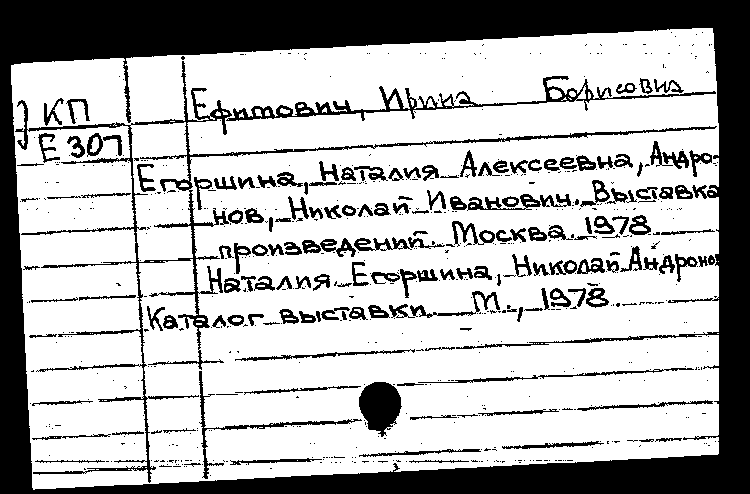 КП
Е 307
Ефимович, Ирина Борисовна
Егоршина, Наталия Алексеевна, Андро-
нов, Николай Иванович. Выставка
произведений. Москва. 1978
Наталия Егоршина, Николай Андронов
Каталог выставки. М., 1978.